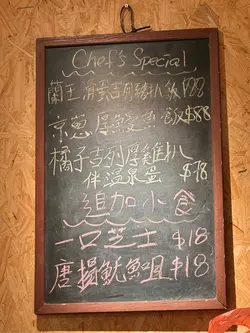 Chef's Special
蘭王滑蛋吉列豬扒飯 $88
京蔥厚鰻魚飯 $88
橘子吉列厚雞扒
伴溫泉蛋 $78
追加小食
一口芝士 $18
唐揚魷魚咀 $18